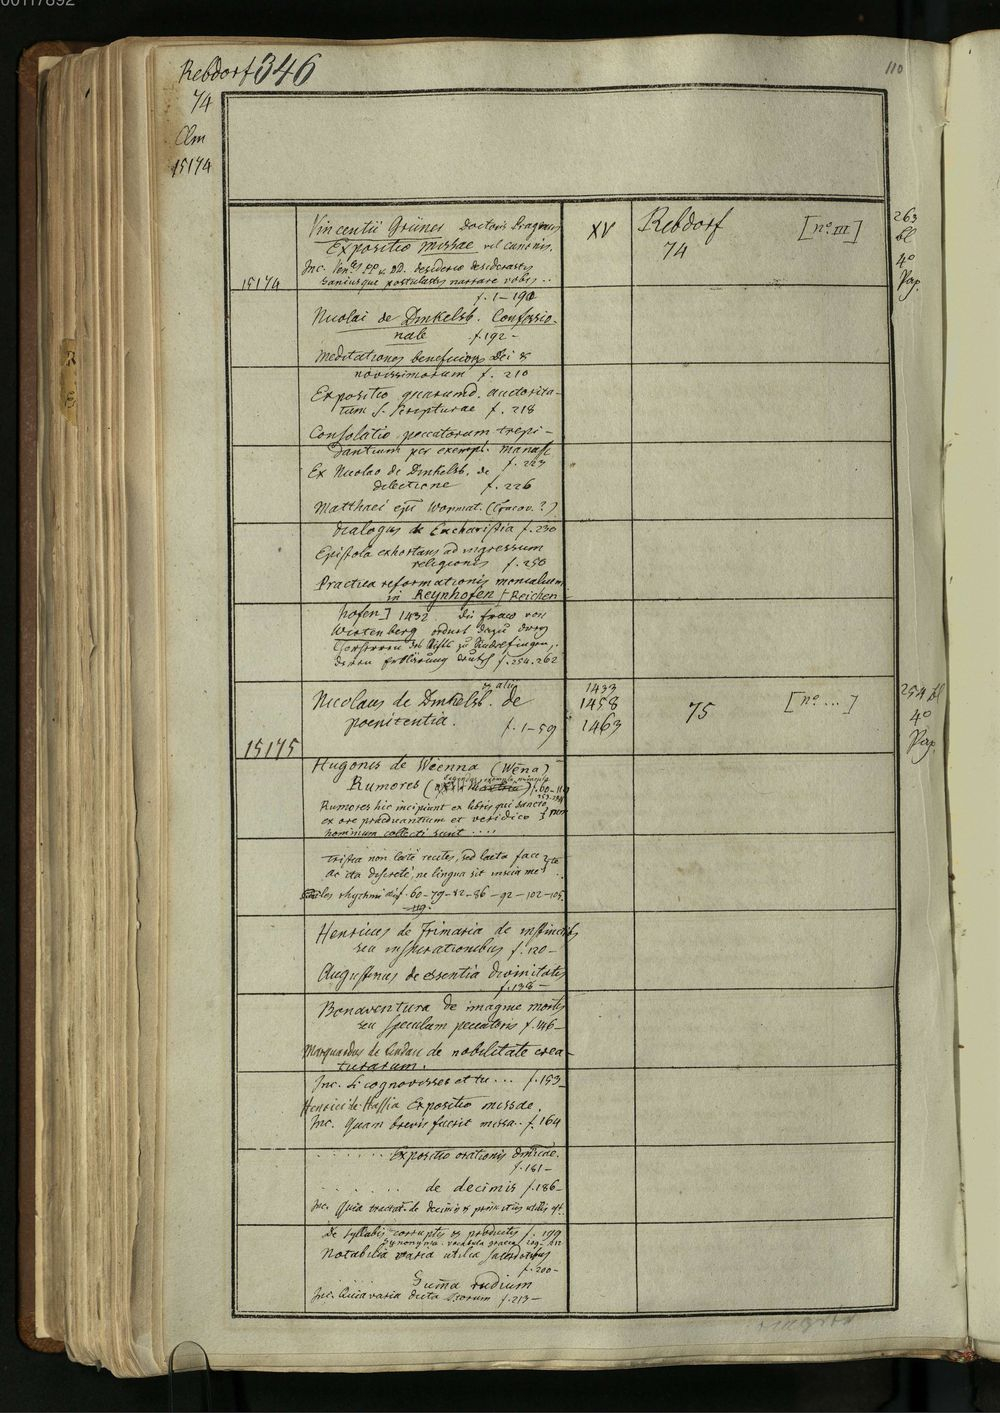 00117892
Rebdorf 346
74
Clm
15174
110
Vincentii Grüner doctoris Pragensis
Expositio missae vel canonis.
Inc. desiderio desiderastis
saniusque postulastis narrare vobis ..
f. 1-190
15174
XV
Rebdorf
74
[no. III]
263
bl
4o
Pap.
Nicolai de Dinkelsb. Confessio-
nale f. 192-
Meditationes beneficiorum Dei &
novissimorum f. 210
Expositio quarumd. auctorita-
tum S. Scripturae f. 218
Consolatio peccatorum trepi-
dantium per exempl. Manasse
f. 223
Ex Nicolao de Dinkelsb. de
dilectione f. 226
Matthaei epi Wormat. (Cracov.?)
dialogus de Eucharistia f. 230
Epistola exhortans ad ingressum
religionis f. 250
Practica reformationis monialium
in Reynhofen [Reichen
hofen] 1432 die fraw von
Wirtenberg ordnet dazu
f. 254. 262
15175
Nicolaus de Dinkelsb. et alii de
poenitentia.
f. 1-59
1433
1458
1463
75
[no ...]
254 bl
4o
Pap.
Hugonis de Wienna (Wena)
Rumores f. 60-119
Rumores hic incipiunt ex libris qui sancto
ex ore praedicantium et veridico
hominum collecti sunt ....
tristia non late recites, sed laeta facete
ac ita discrete, ne lingua sit inscia metae ..
rhythmi f. 60-79-82-86-92-102-105
119.
Henricus de Frimaria de instinctibus
seu inspirationibus f. 120-
Augustinus de essentia divinitatis
f. 138-
Bonaventura de imagine mortis
seu speculum peccatoris f. 146-
Marquardus de Lindau de nobilitate crea-
turarum.
Inc. Si cognovisses et tu ... f. 153-
Henrici de Hassia Expositio missae.
Inc. Quam brevis fuerit missa.. f. 164
...... Expositio orationis dominicae.
f. 181-
...... de decimis f. 186-
Inc. Quia tractat. de decimis & primitiis utilis est.
De syllabis correptis et productis f. 199
Synonyma. vocabula graeca
Notabilia varia utilia sacerdotibus
f. 200-
Suma rudium
Inc. Quia varia dicta f. 213-